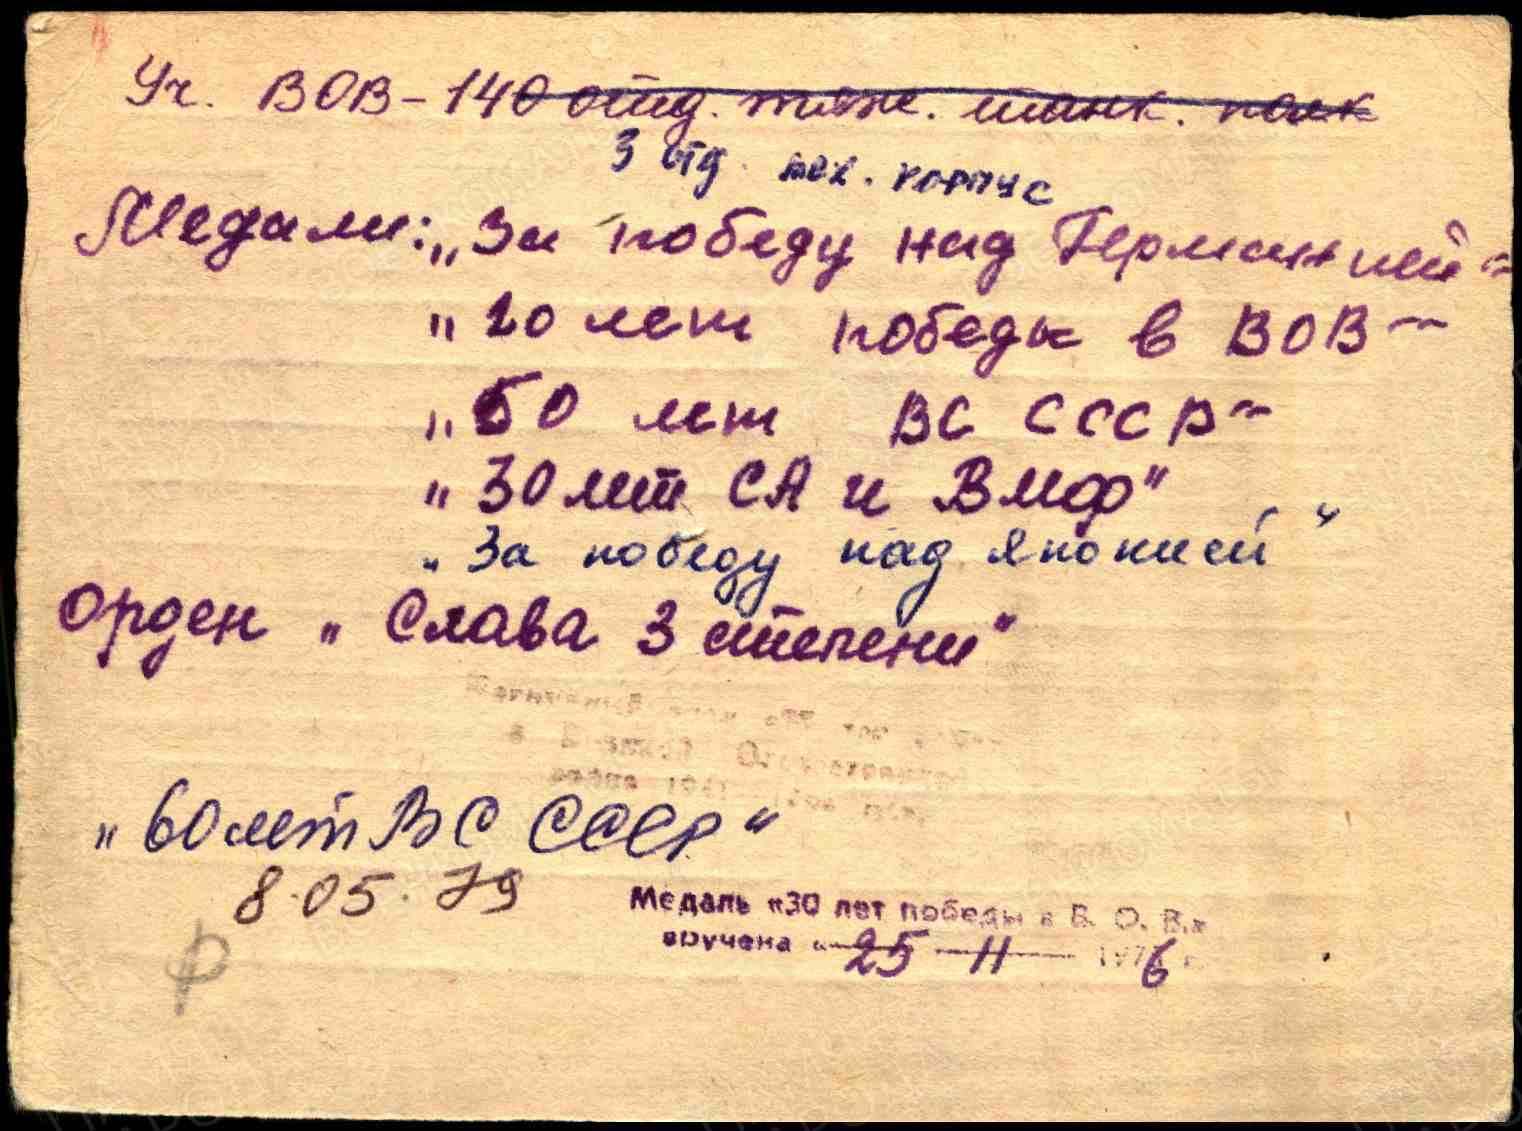 Уч. ВОВ - 140 отд. тяж. танк. полк
3 отд. мех. корпус
Медали: „За победу над Германией"
„20 лет победы в ВОВ"
„50 лет ВС СССР"
„30 лет СА и ВМФ"
„За победу над Японией"
Орден „Слава 3 степени"
в Великой Отечественной
войне 1941
„60 лет ВС СССР"
8.05.79
Медаль «30 лет победы в В. О. В.»
вручена «25 11 1976 г.